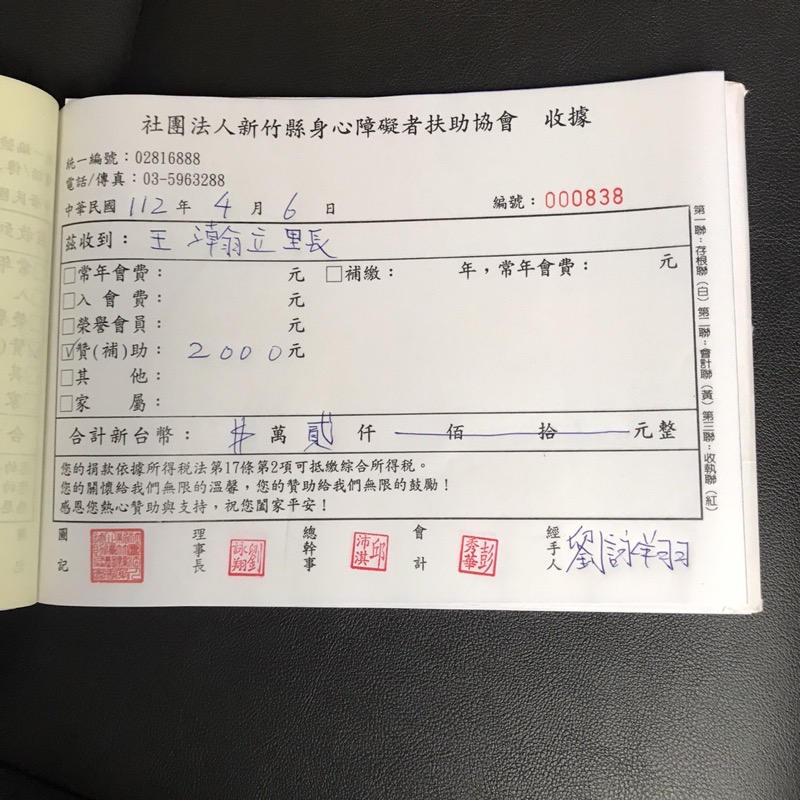 社團法人新竹縣身心障礙者扶助協會 收據
統一編號：02816888
電話/傳真：03-5963288
中華民國 112 年 4 月 6 日 編號：000838
茲收到：王瀚立里長
□常年會費： 元 □補繳： 年，常年會費： 元
□入會費： 元
□榮譽會員： 元
☑贊(補)助：2000元
□其他：
□家屬：
合計新台幣： 萬 貳 仟 佰 拾 元整
您的捐款依據所得稅法第17條第2項可抵繳綜合所得稅。
您的關懷給我們無限的溫馨，您的贊助給我們無限的鼓勵！
感恩您熱心贊助與支持，祝您闔家平安！
圖記 理事長 劉詠翔 總幹事 邱沛淇 會計 彭秀華 經手人 劉詠翔
第一聯：存根聯(白) 第二聯：會計聯(黃) 第三聯：收執聯(紅)